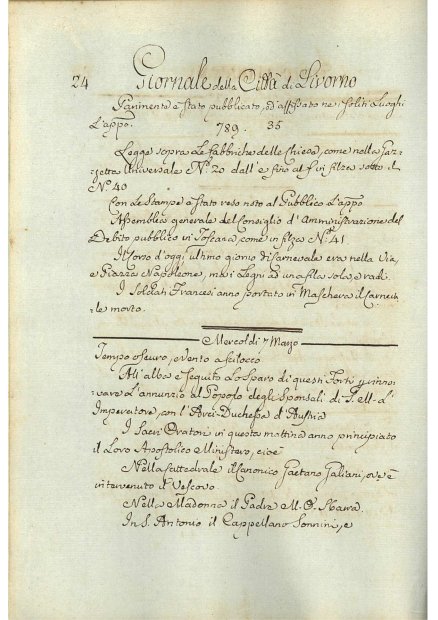 24 Giornale della Città di Livorno
Parimente è stato pubblicato, ed affissato ne soliti Luoghi
L'appo. 789. 35
Legge sopra Le fabbriche delle Chiese, come nella Gaz-
zetta Universale N.° 20 dall' e fino al f in filza sotto il
N.° 40
Con Le Stampe è stato reso noto al Pubblico L'appo
Assemblea generale del Consiglio d'Amministrazione del
Debito pubblico in Toscana, come in filza N.° 41
Il Corso d'oggi ultimo giorno di Carnevale era nella Via,
e Piazza Napoleone, mà i Legni ad una fila sola, e radi.
I Soldati Francesi anno portato in Maschera il Carneva-
le morto.
Mercoldì 7 Marzo
Tempo oscuro, e Vento a scilocco
All'alba è seguito Lo Sparo di questi Forti per rinno-
vare L'annunzio al Popolo degli Sponsali di S. M. L'
Imperatore, con l'Arci-Duchessa d'Austria
I Sacri Oratori in questa mattina anno principiato
il Loro Apostolico Ministero, cioè
Nella Cattedrale il Canonico Gaetano Galiani, ove è
intervenuto il Vescovo
Nella Madonna il Padre M. O.
In S. Antonio il Cappellano Sonnini, e